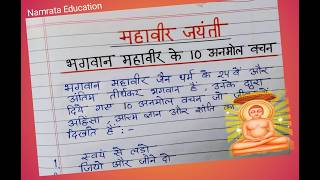 Namrata Education
महावीर जयंती
भगवान महावीर के 10 अनमोल वचन
भगवान महावीर जैन धर्म के 24 वें और
अंतिम तीर्थंकर भगवान है, उनके द्वारा
दिये गए 10 अनमोल वचन जो
अहिंसा, आत्म ज्ञान और शांति का
दिखाते हैं :-
1. स्वयं से लड़ो
जियो और जीने दो